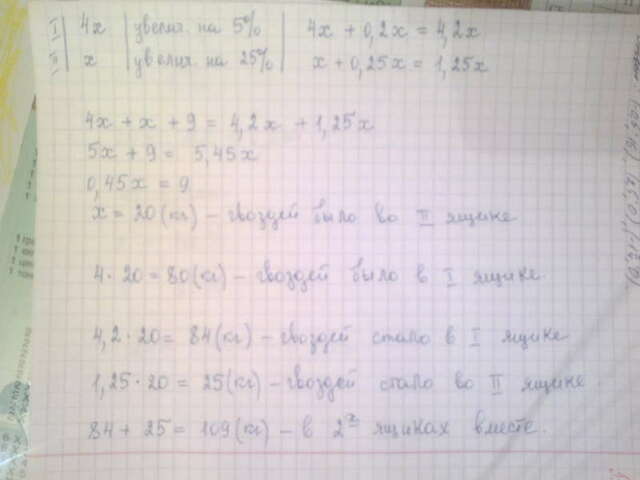 I | 4x | увелич. на 5% | 4x + 0,2x = 4,2x
II | x | увелич. на 25% | x + 0,25x = 1,25x
4x + x + 9 = 4,2x + 1,25x
5x + 9 = 5,45x
0,45x = 9
x = 20 (кг) – гвоздей было во II ящике
4 · 20 = 80 (кг) – гвоздей было в I ящике
4,2 · 20 = 84 (кг) – гвоздей стало в I ящике
1,25 · 20 = 25 (кг) – гвоздей стало во II ящике.
84 + 25 = 109 (кг) – в 2х ящиках вместе.